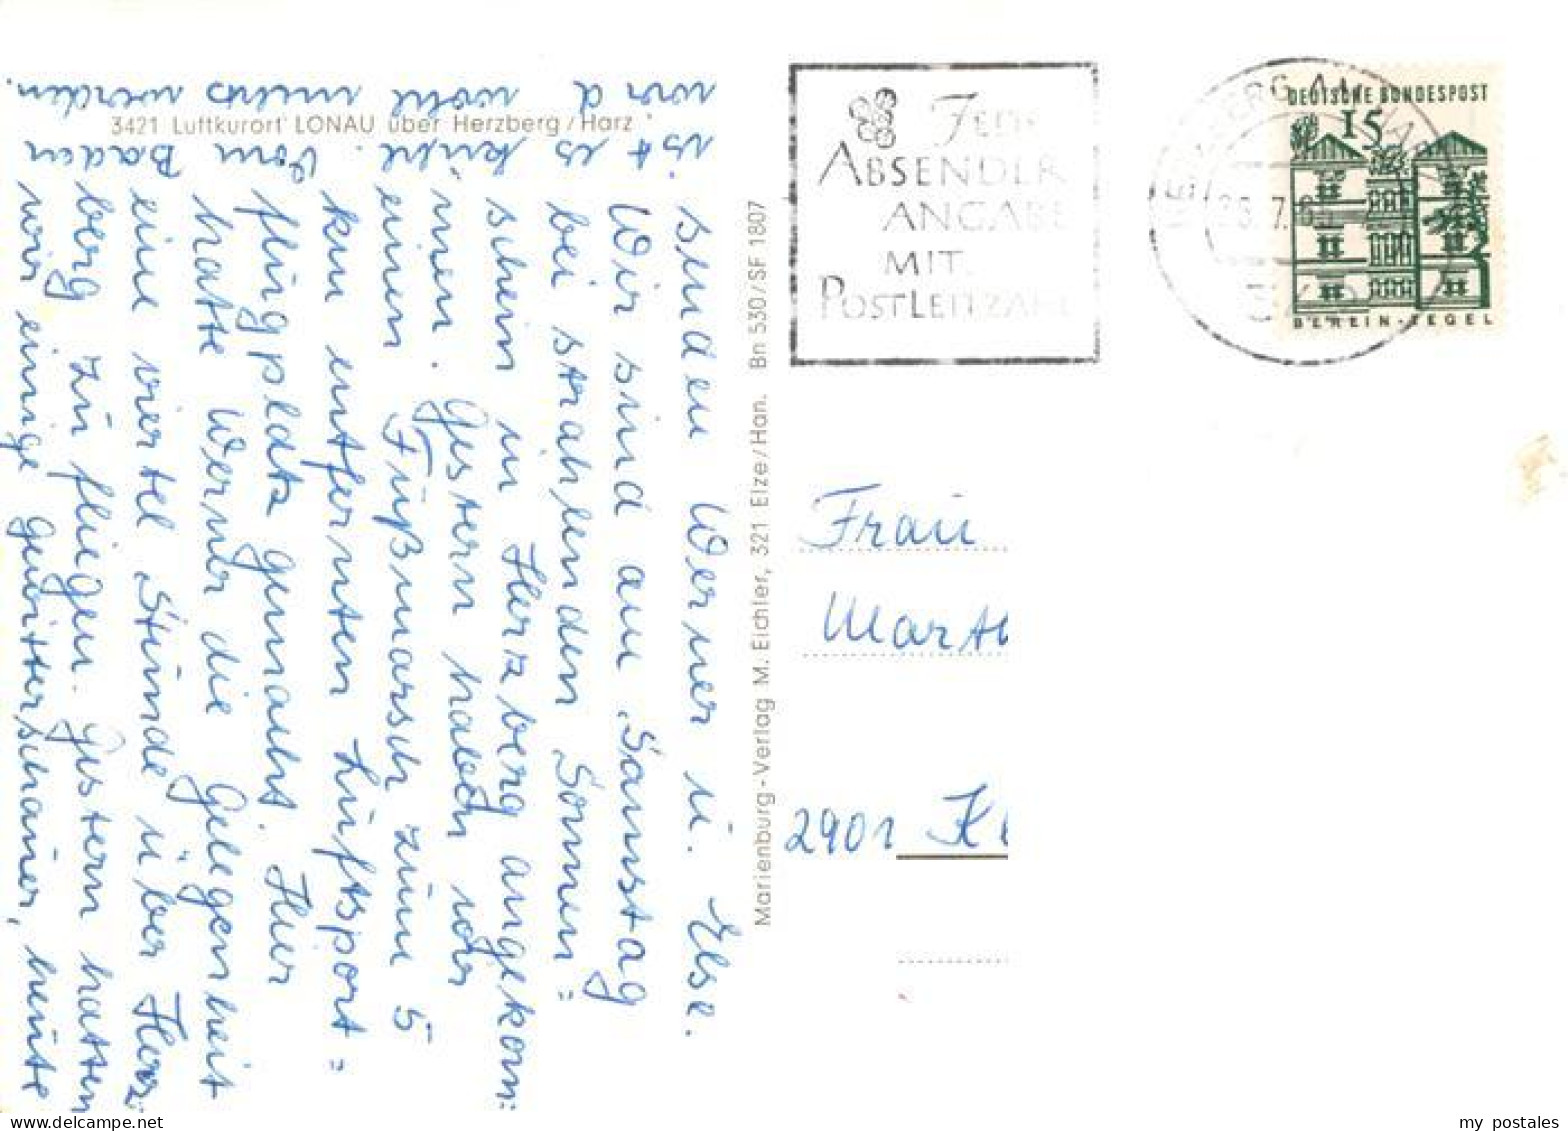 3421 Luftkurort LONAU über Herzberg/Harz
senden Werner u. Else.
Wir sind am Samstag
bei strahlenden Sonnen=
schein in Herzberg angekom:
men. Gestern haben wir
einen Fußmarsch zum 5
km entfernten Luftsport=
flugplatz gemacht. Hier
hatte Werner die Gelegenheit
eine viertel Stunde über Herz
berg zu fliegen. Gestern hatten
wir einige Gewitterschauer, heute
ist es kühl. Vom Baden
wird wohl nichts werden.
Marienburg-Verlag M. Eichler, 321 Elze/Han. Bn 530/SF 1807
ABSENDER
ANGABE
MIT
POSTLEITZAHL
DEUTSCHE BUNDESPOST
15
BERLIN-TEGEL
Frau
Marth
2901 Kl
my postales